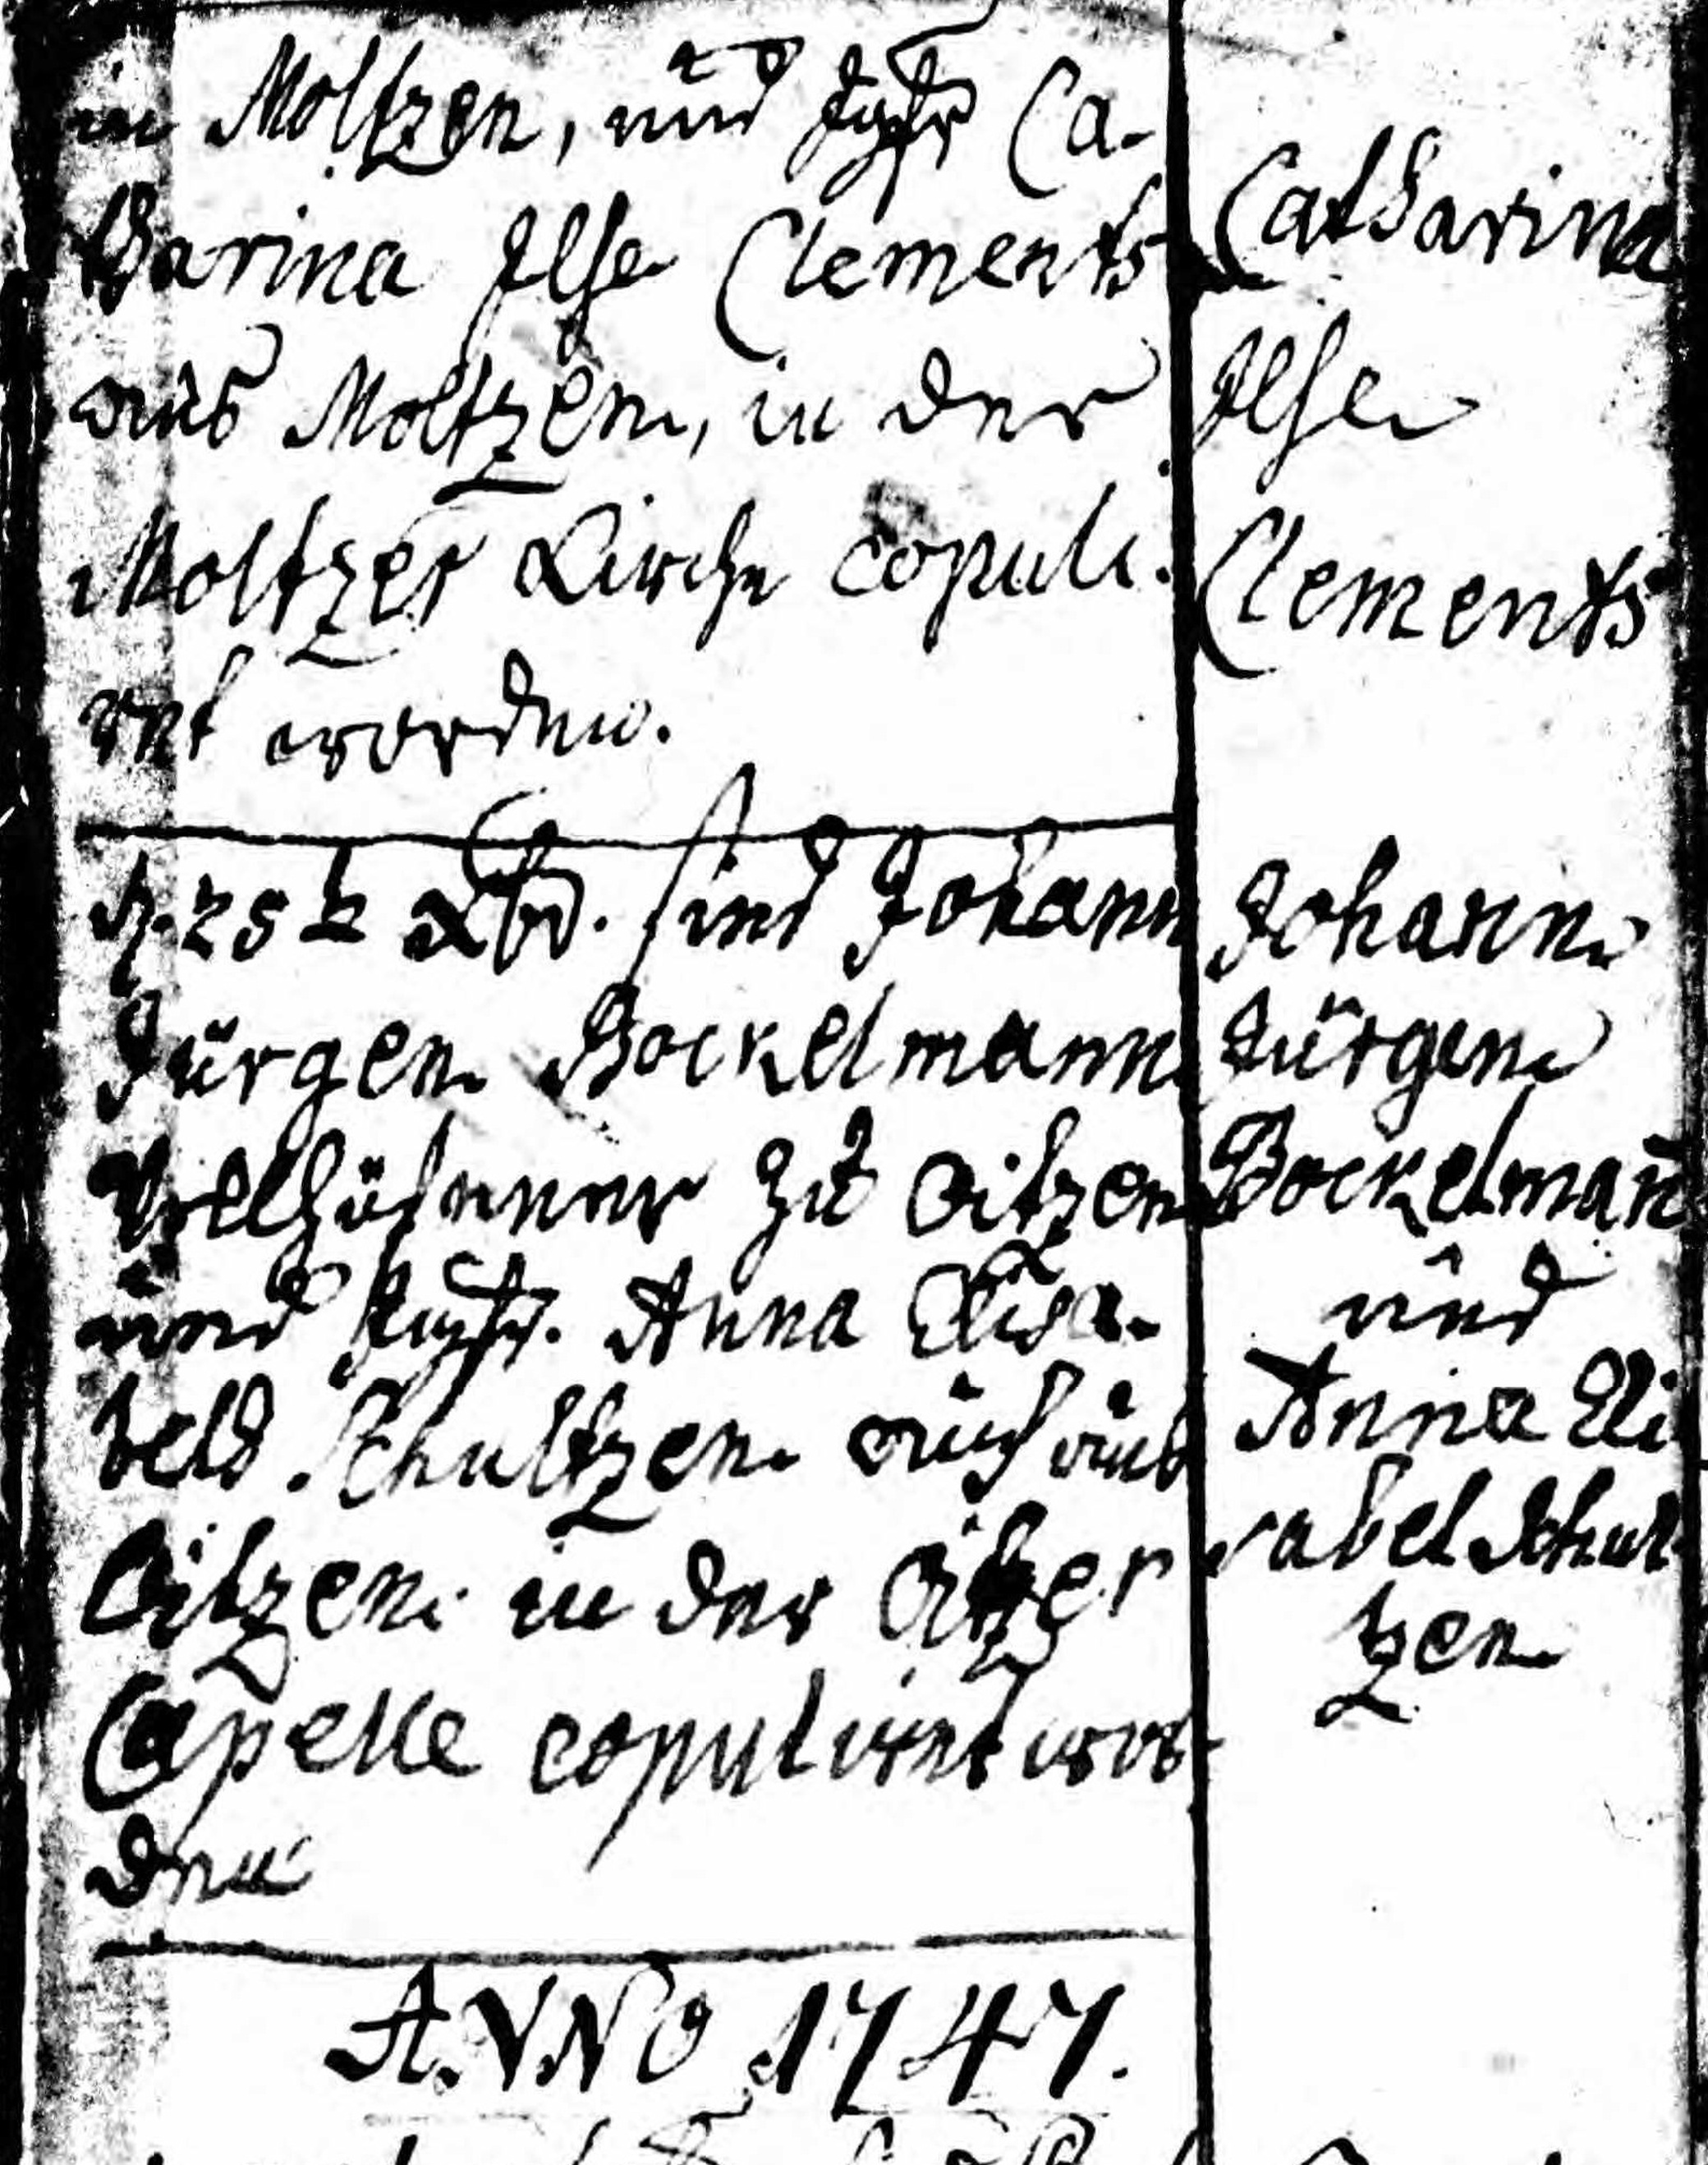 in Moltzen, und Jgfr Ca-
tharina Ilse Clements
aus Moltzen, in der
Moltzer Kirche copuli-
ret worden.
Catharina
Ilse
Clements
d. 25 t Xbr. sind Johann
Jürgen Bockelmann
zu Oitzen
und Jgfr. Anna Elisa-
beth Schultzen auch aus
Oitzen in der Oitzer
Capelle copuliret wor-
den
Johann
Jürgen
Bockelman̄
und
Anna Eli
sabel Schul
tzen
ANNO 1747.